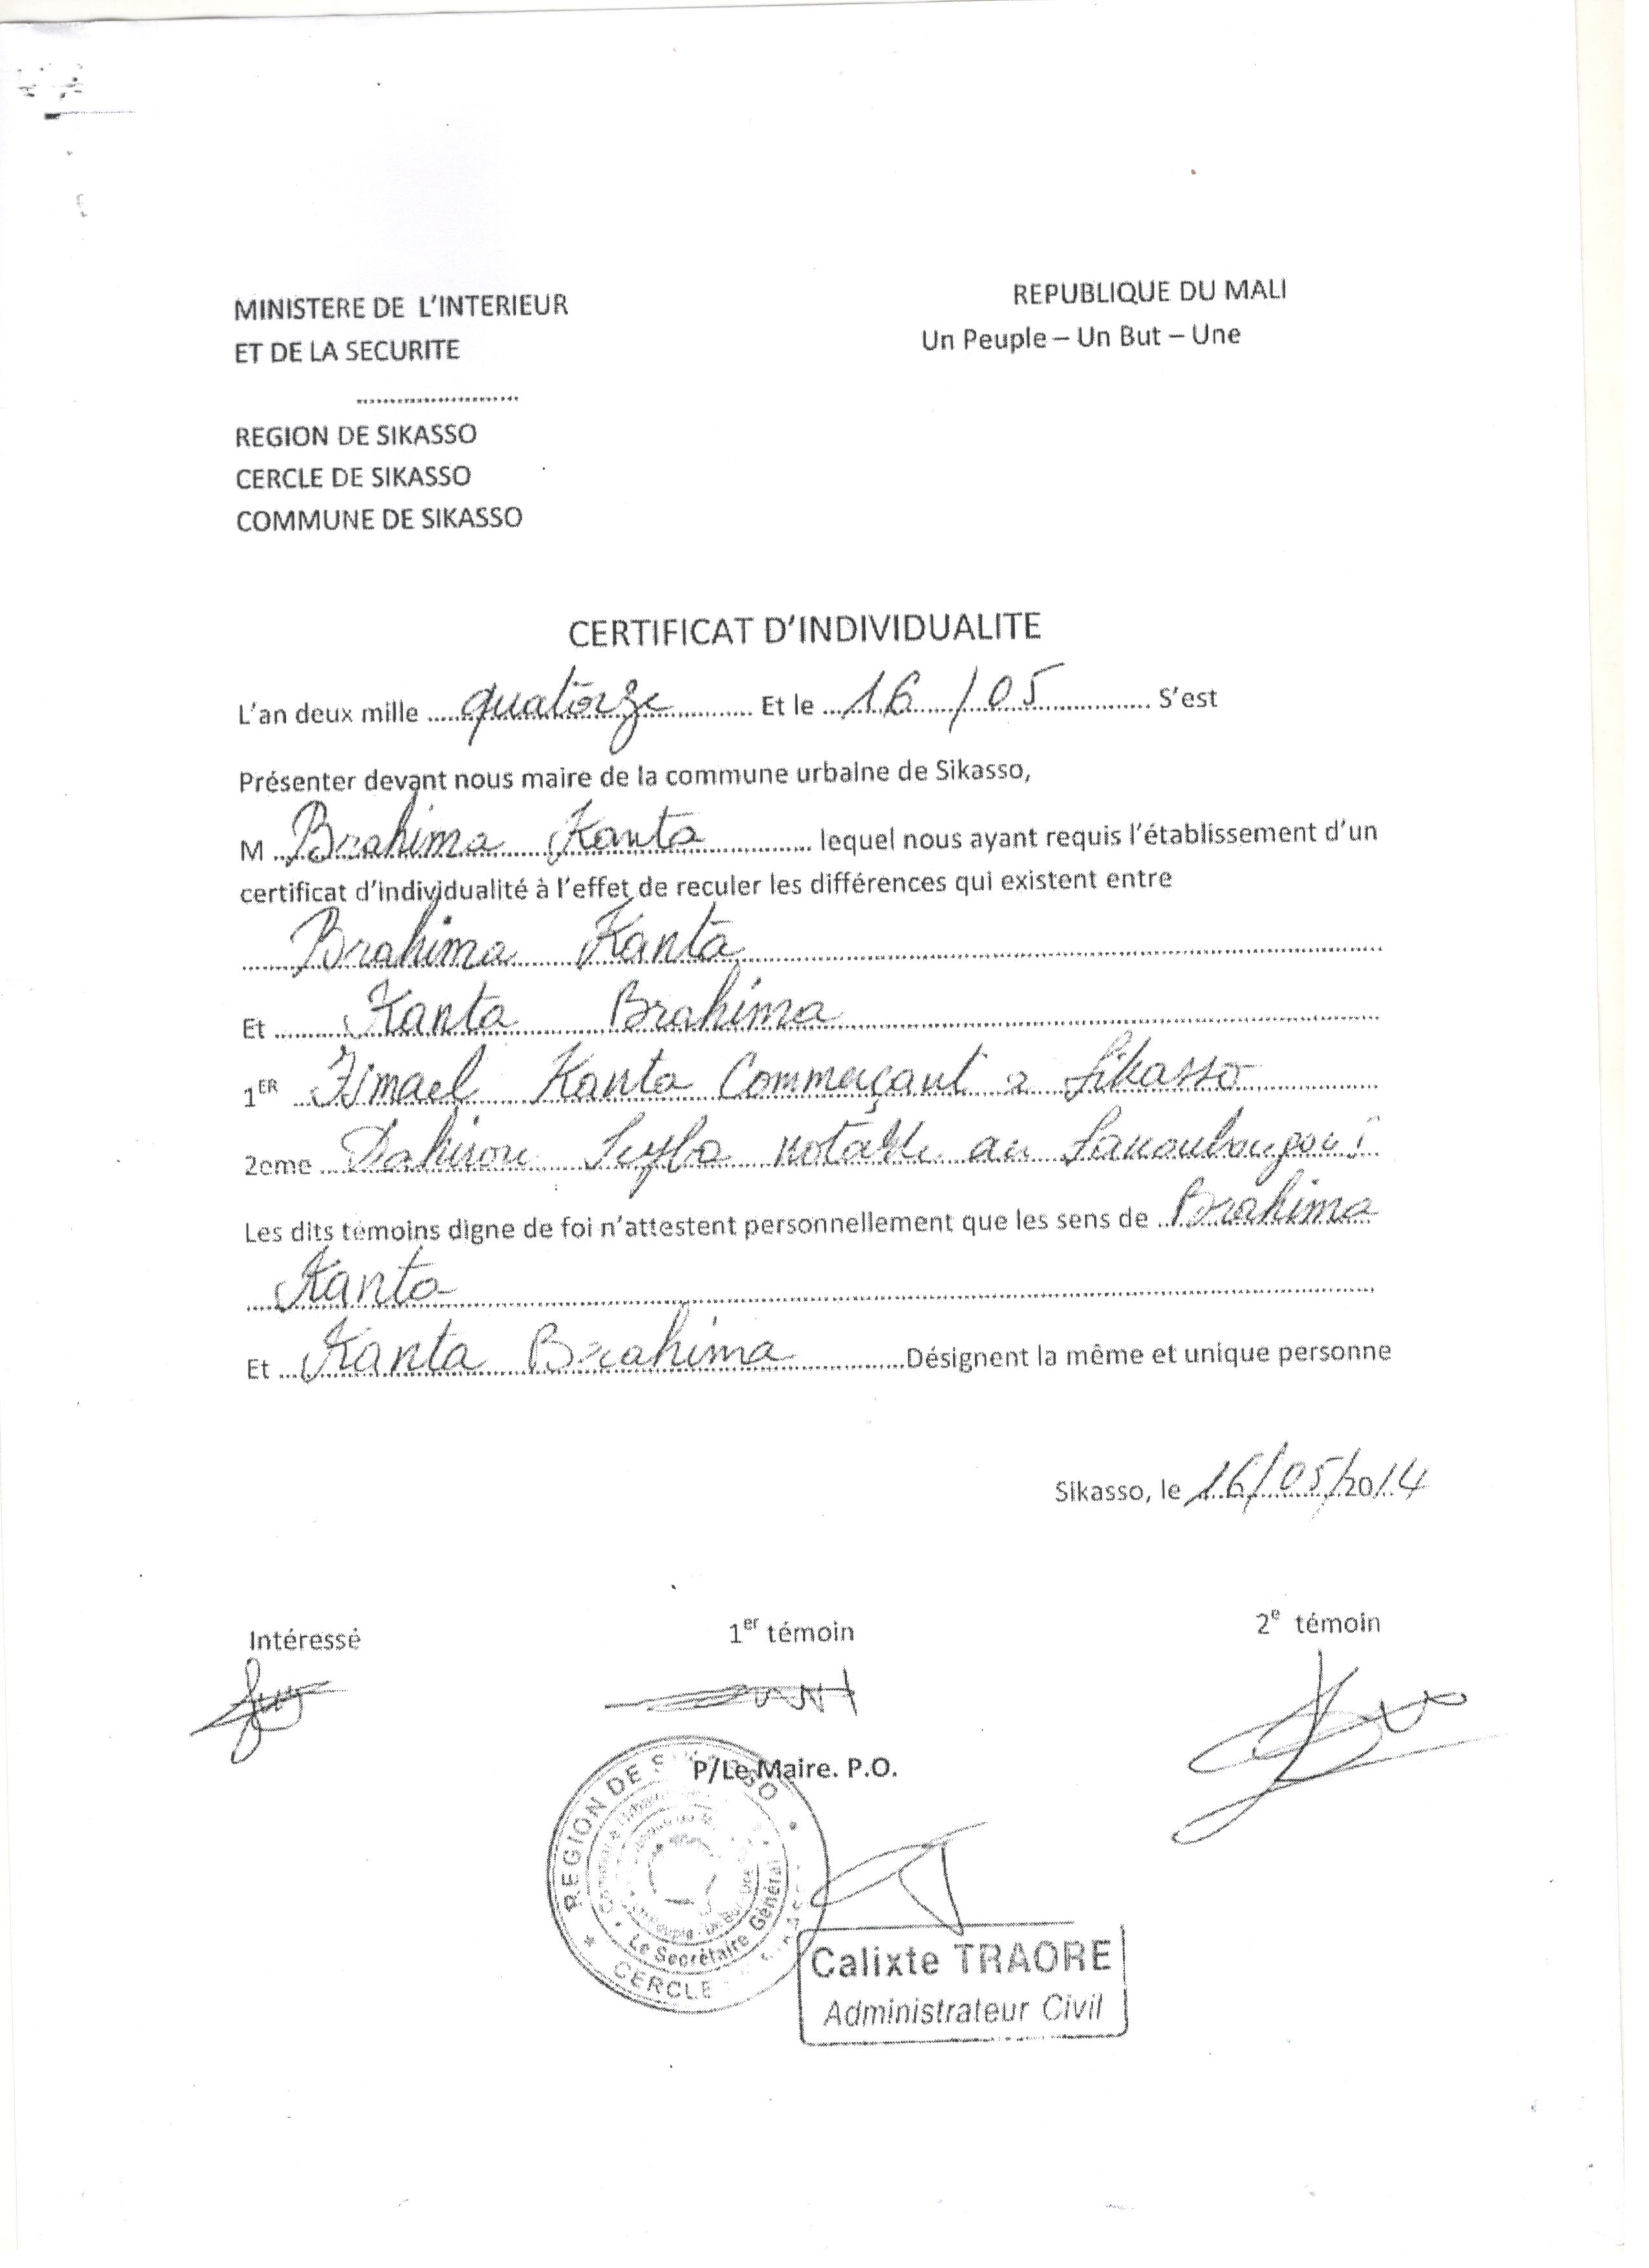 MINISTERE DE L'INTERIEUR
ET DE LA SECURITE
........................
REGION DE SIKASSO
CERCLE DE SIKASSO
COMMUNE DE SIKASSO
REPUBLIQUE DU MALI
Un Peuple – Un But – Une
CERTIFICAT D'INDIVIDUALITE
L'an deux mille quatorze Et le 16/05 S'est
Présenter devant nous maire de la commune urbaine de Sikasso,
M Brahima Kanta lequel nous ayant requis l'établissement d'un
certificat d'individualité à l'effet de reculer les différences qui existent entre
Brahima Kanta
Et Kanta Brahima
1ER Ismael Kanta Commerçant a Sikasso
2eme notable au
Les dits témoins digne de foi n'attestent personnellement que les sens de Brahima
Kanta
Et Kanta Brahima Désignent la même et unique personne
Sikasso, le 16/05/2014
Intéressé
1er témoin
2e témoin
P/Le Maire. P.O.
REGION DE SIKASSO
Le Secrétaire Général
CERCLE
Calixte TRAORE
Administrateur Civil